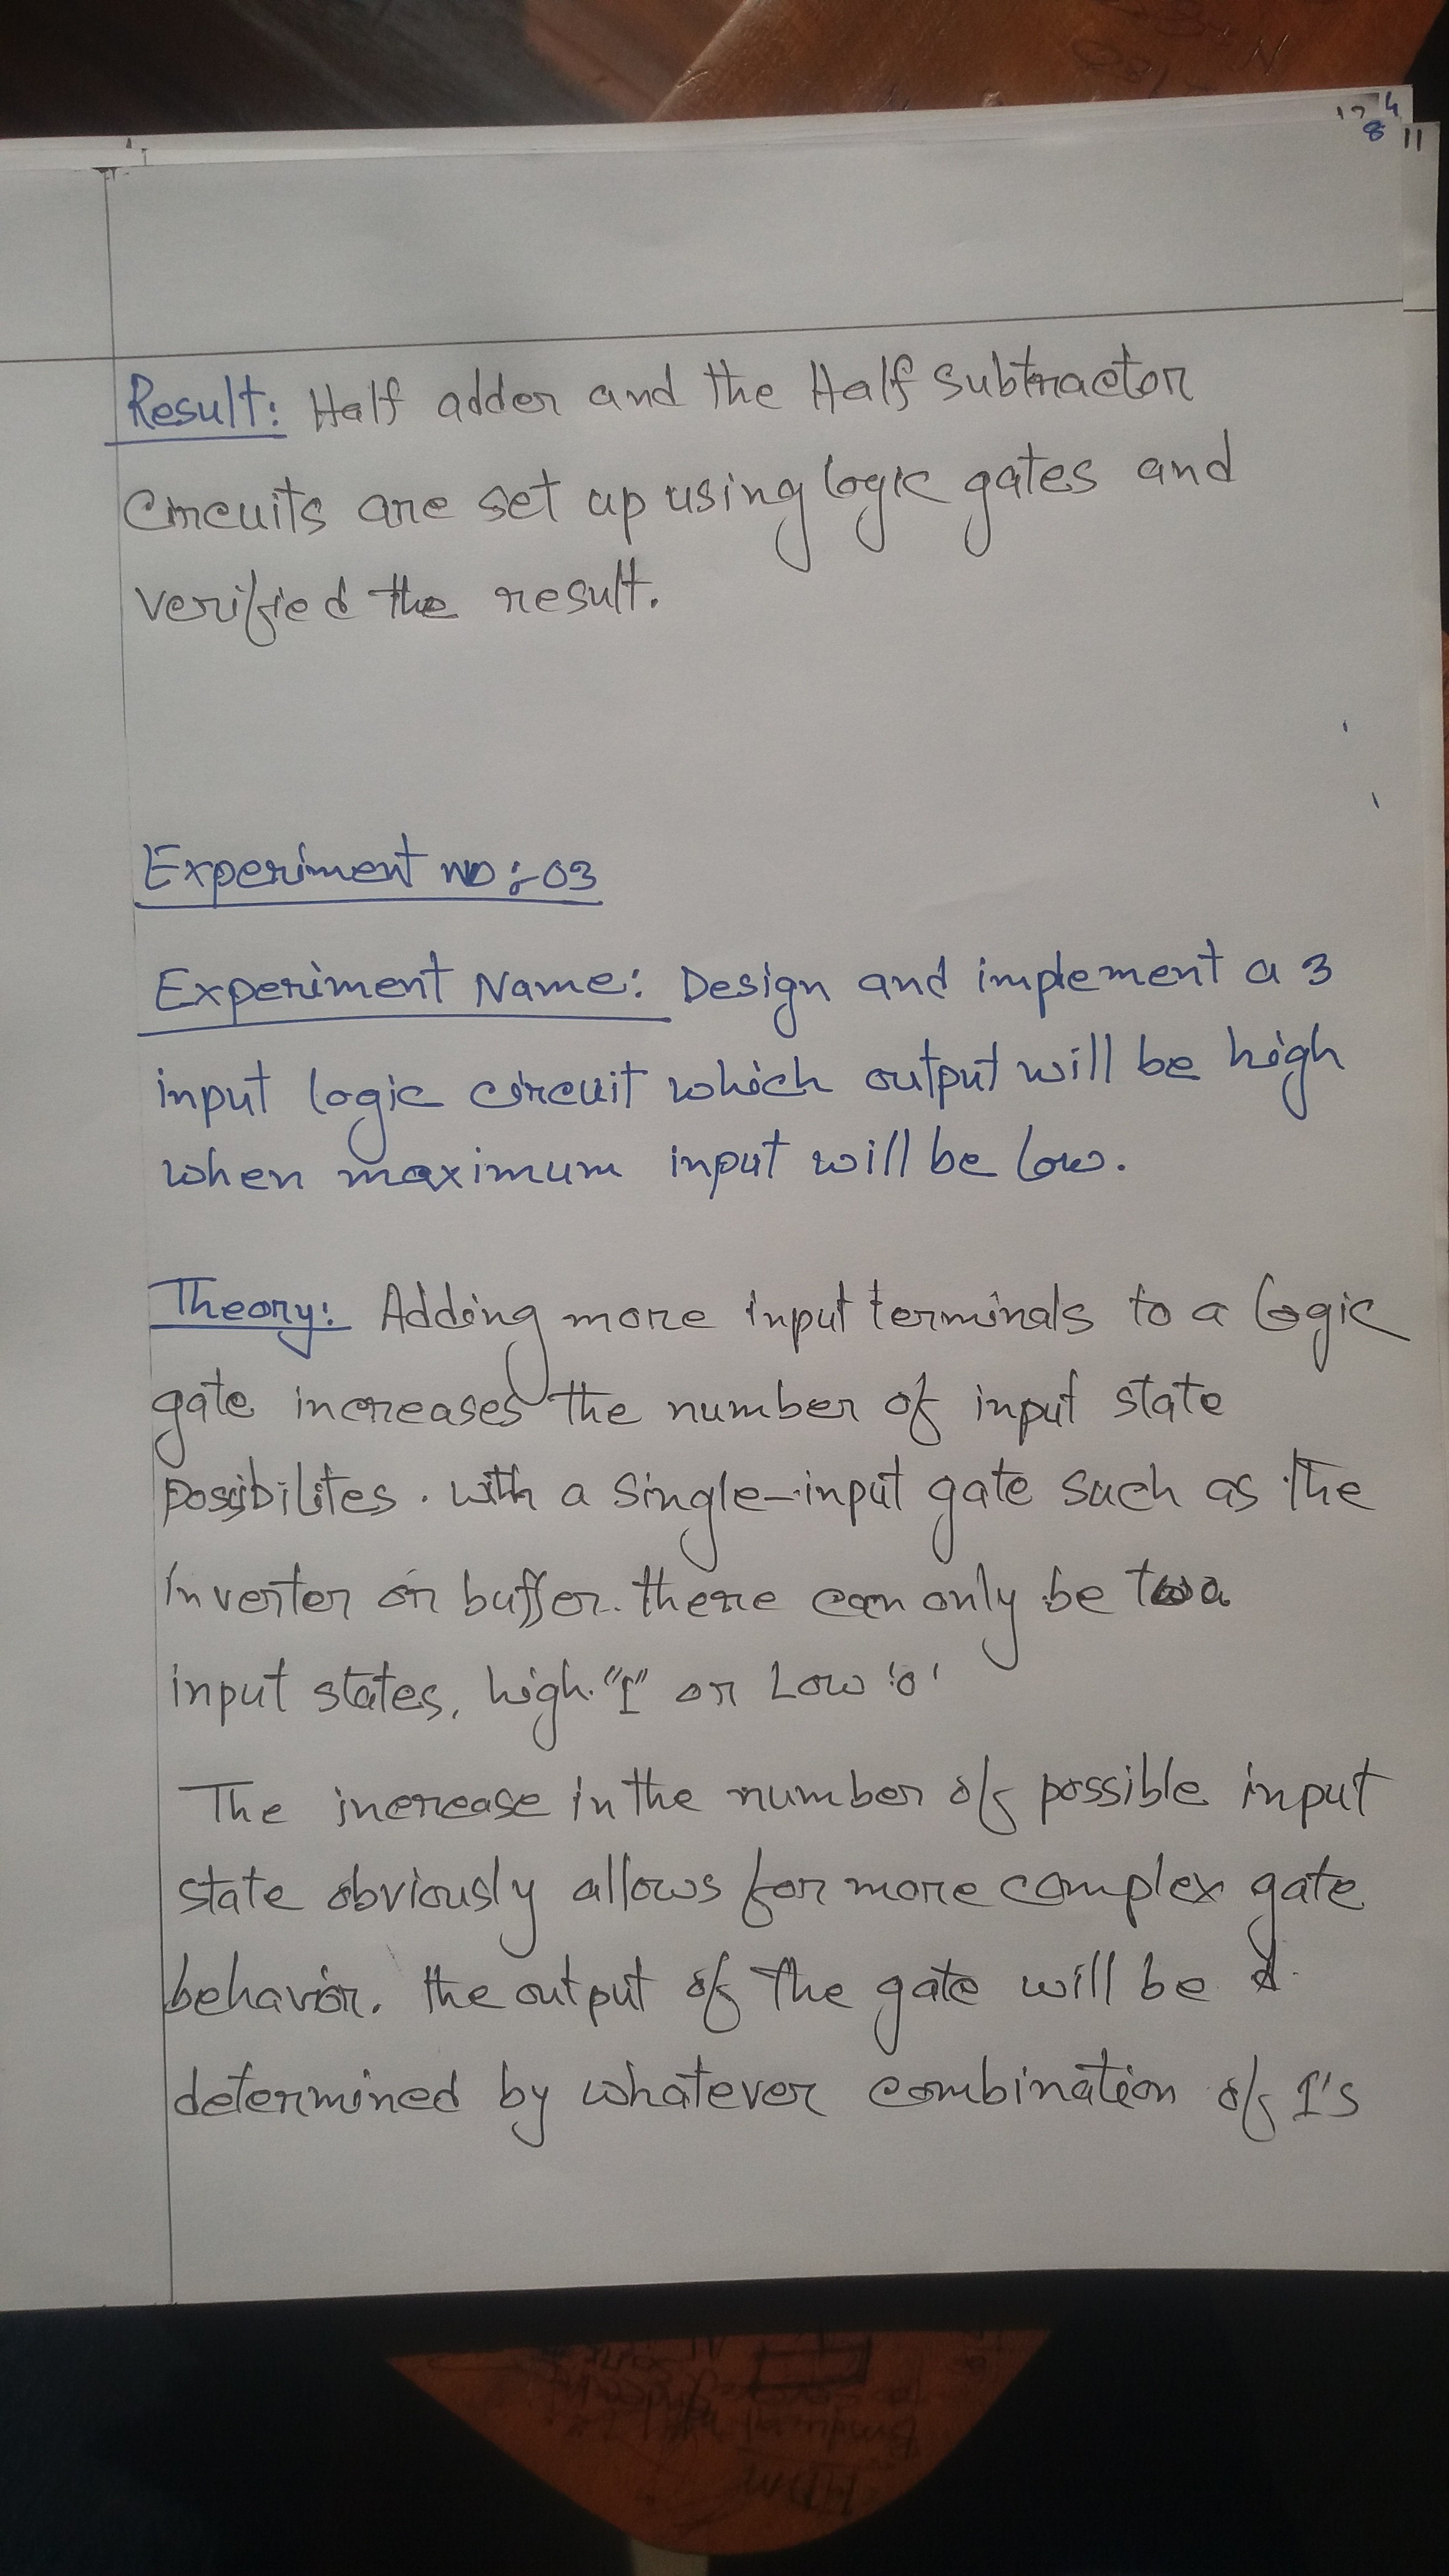 8 11
Result: Half adder and the Half Subtractor
Circuits are set up using logic gates and
verified the result.
Experiment no :- 03
Experiment Name: Design and implement a 3
input logic circuit which output will be high
when maximum input will be low.
Theory: Adding more input terminals to a logic
gate increases the number of input state
possibilites. with a single-input gate such as the
inverter or buffer. there can only be two
input states, high "1" or Low '0'
The increase in the number of possible input
state obviously allows for more complex gate
behavior. the output of the gate will be
determined by whatever combination of 1's